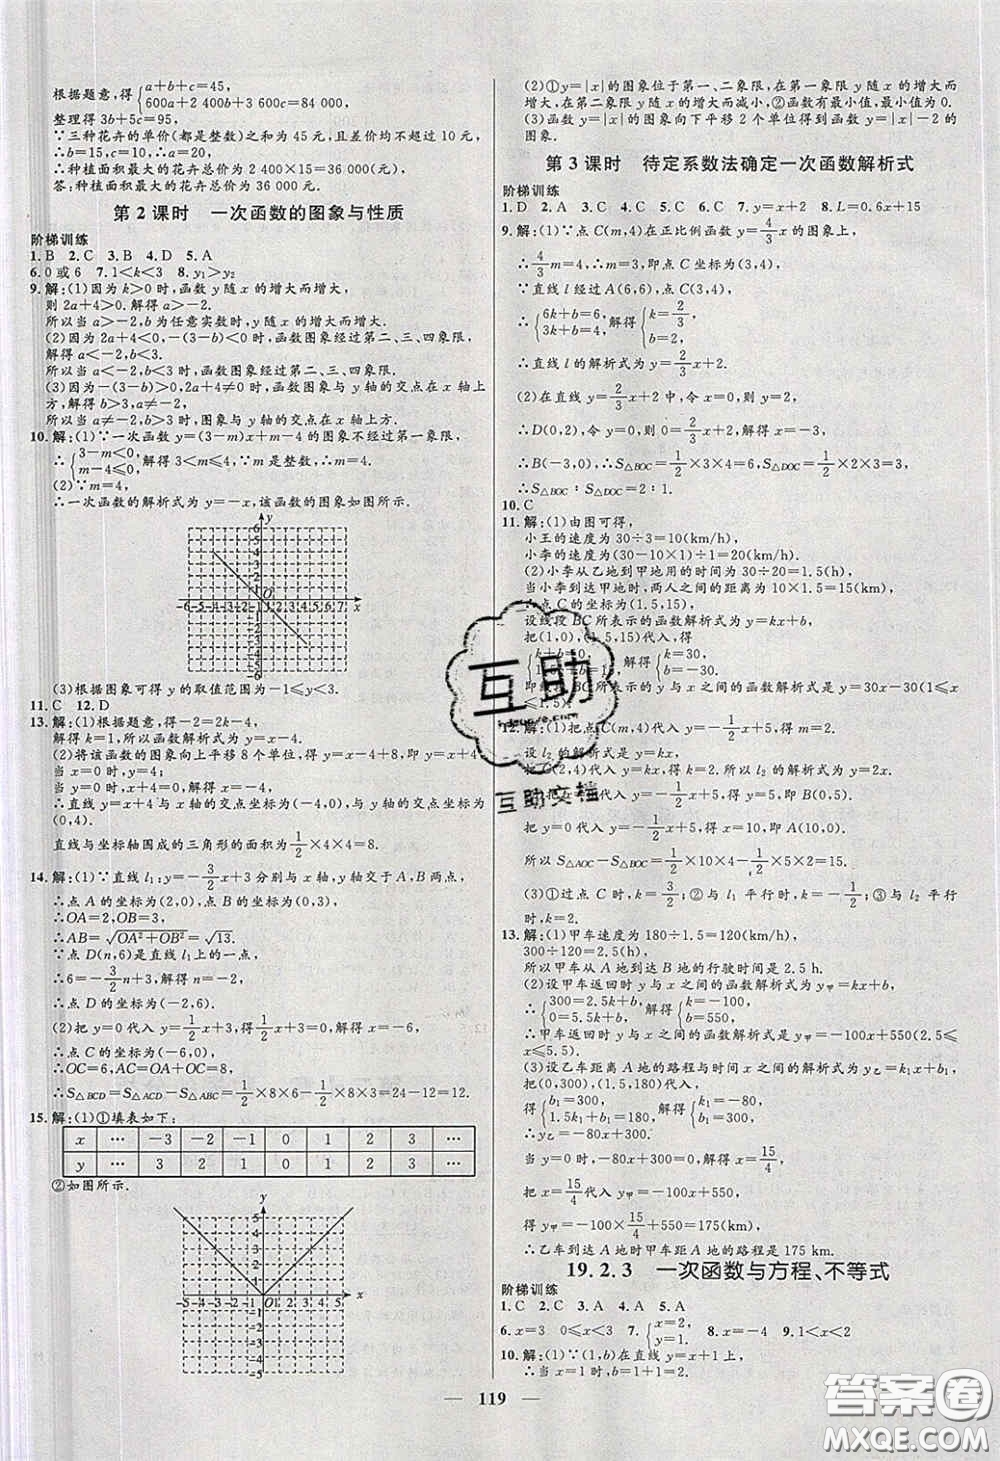 根据题意,得{a+b+c=45, 600a+2 400b+3 600c=84 000,
整理得3b+5c=95.
∵三种花卉的单价(都是整数)之和为45元,且差价均不超过10元,
∴b=15,c=10,∴a=20.
∴种植面积最大的花卉总价为36 000元.
答:种植面积最大的花卉总价为36 000元.
第2课时 一次函数的图象与性质
阶梯训练
1.B 2.C 3.B 4.D 5.A
6.0或6 7.1<k<3 8.y₁>y₂
9.解:(1)因为k>0时,函数y随x的增大而增大,
则2a+4>0.解得a>-2.
所以当a>-2,b为任意实数时,y随x的增大而增大.
(2)因为2a+4<0,-(3-b)<0时,函数图象经过第二、三、四象限,
解得a<-2,b<3.
所以当a<-2,b<3时,函数图象经过第二、三、四象限.
(3)因为-(3-b)>0,2a+4≠0时,函数图象与y轴的交点在x轴上
方,解得b>3,a≠-2.
所以当a≠-2,b>3时,图象与y轴的交点在x轴上方.
10.解:(1)∵一次函数y=(3-m)x+m-4的图象不经过第一象限,
∴{3-m<0, m-4≤0,解得3<m≤4.∵m是整数,∴m=4.
(2)∵m=4,
∴一次函数的解析式为y=-x,该函数的图象如图所示.
(3)根据图象可得y的取值范围为-1≤y≤3.
11.C 12.D
13.解:(1)根据题意,得-2=2k-4,
解得k=1,所以函数解析式为y=x-4.
(2)将该函数的图象向上平移8个单位,得y=x-4+8,即y=x+4
当x=0时,y=4;
当y=0时,x+4=0,解得x=-4.
∴直线y=x+4与x轴的交点坐标为(-4,0),与y轴的交点坐标为
(0,4).
直线与坐标轴围成的三角形的面积为1/2×4×4=8.
14.解:(1)∵直线l₁:y=-3/2x+3分别与x轴,y轴交于A,B两点,
∴点A的坐标为(2,0),点B的坐标为(0,3),
∴OA=2,OB=3,
∴AB=√(OA²+OB²)=√13.
∵点D(n,6)是直线l₁上的一点,
∴6=-3/2n+3,解得n=-2,
∴点D的坐标为(-2,6).
(2)把y=0代入y=1/2x+3,得0=1/2x+3,解得x=-6,
∴点C的坐标为(-6,0),
∴OC=6,AC=OA+OC=8,
∴S△BCD=S△ACD-S△ABC=1/2×8×6-1/2×8×3=24-12=12.
15.解:(1)①填表如下:
x … -3 -2 -1 0 1 2 3 …
y … 3 2 1 0 1 2 3 …
②如图所示.
(2)①y=|x|的图象位于第一、二象限,在第一象限y随x的增大而
增大,在第二象限y随x的增大而减小,②函数有最小值,最小值为0.
(3)函数y=|x|的图象向下平移2个单位得到函数y=|x|-2的
图象.
第3课时 待定系数法确定一次函数解析式
阶梯训练
1.D 2.A 3.C 4.A 5.B 6.C 7.y=x+2 8.L=0.6x+15
9.解:(1)∵点C(m,4)在正比例函数y=4/3x的图象上,
∴4/3m=4,∴m=3,即点C坐标为(3,4).
∵直线l经过A(6,6),点C(3,4),
∴{6k+b=6, 3k+b=4,解得{k=2/3, b=2.
∴直线l的解析式为y=2/3x+2.
(2)在直线y=2/3x+2中,令x=0,得y=2,
∴D(0,2),令y=0,得0=2/3x+2,解得x=-3,
∴B(-3,0),∴S△BOC=1/2×3×4=6,S△DOC=1/2×2×3=3,
∴S△BOC∶S△DOC=2∶1.
10.C
11.解:(1)由图可得,
小王的速度为30÷3=10(km/h),
小李的速度为(30-10×1)÷1=20(km/h).
(2)小李从乙地到甲地用的时间为30÷20=1.5(h),
当小李到达甲地时,两人之间的距离为10×1.5=15(km),
∴点C的坐标为(1.5,15),
设线段BC所表示的函数解析式为y=kx+b,
把(1,0),(1.5,15)代入,得
{k+b=0, 解得{k=30, b=-30.
即线段BC所表示的y与x之间的函数解析式是y=30x-30(1≤x
≤1.5).
12.解:(1)把点C(m,4)代入y=-1/2x+5,得m=2,
设l₂的解析式是y=kx,
把C(2,4)代入得2k=4,解得k=2,所以l₂的解析式为y=2x.
(2)把x=0代入y=-1/2x+5,得y=5,即B(0,5).
把y=0代入y=-1/2x+5,得x=10,即A(10,0),
所以S△AOC-S△BOC=1/2×10×4-1/2×5×2=15.
(3)①过点C时,k=3/2;②与l₁平行时,k=-1/2;③与l₂平行
时,k=2.
13.解:(1)甲车速度为180÷1.5=120(km/h),
300÷120=2.5(h).
所以甲车从A地到达B地的行驶时间为2.5 h.
(2)设甲车返回时y与x之间的函数解析式是y甲=kx+b,
∴{300=2.5k+b, 0=5.5k+b,解得{k=-100, b=550.
∴甲车返回时y与x之间的函数解析式是y甲=-100x+550(2.5≤
x≤5.5).
(3)设乙车距A地的路程与时间的函数解析式为y乙=k₁x+b₁,
得{b₁=300, 1.5k₁+b₁=180,解得{k₁=-80, b₁=300.
∴y乙=-80x+300.
当y乙=0时,-80x+300=0,解得x=15/4,
把x=15/4代入y甲=-100x+550,
得y甲=-100×15/4+550=175(km),
∴乙车到A地时甲车距A地的路程是175 km.
19.2.3 一次函数与方程、不等式
阶梯训练
1.C 2.C 3.A 4.A 5.A
6.x=3 0≤x≤3 7.{x=2, y=1. 8.x=-4 9.1<x<2
10.解:(1)∵(1,b)在直线y=x+1上,
∴当x=1时,b=1+1=2.
119
互助
互助文档
答案圈
MXQE.COM